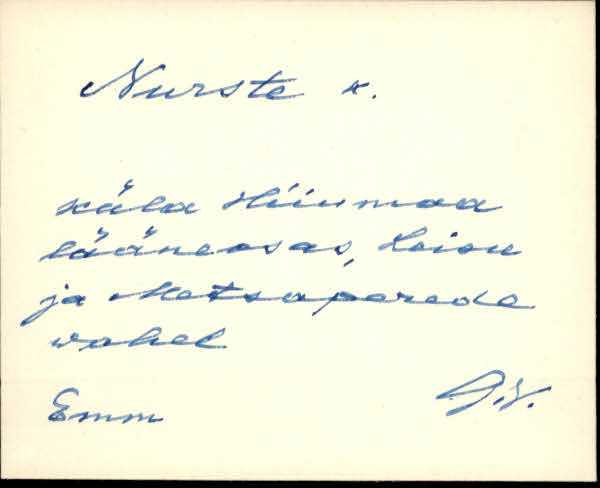 Nurste k.
küla Hiiumaa
lääneosas, Leisu
ja Metsaperede
vahel
Emm